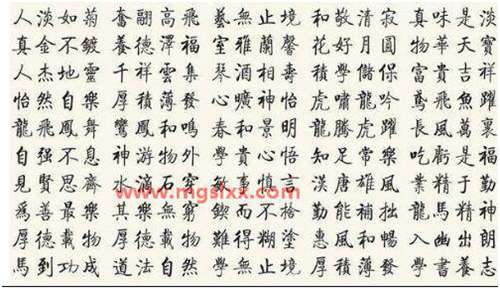 人淡如菊 奮翮高飛 藝無止境 和敬清寂 真味是淡
真金不鍍 養德澤福 室雅蘭馨 花好月圓 物華天寶
人杰地靈 千祥雲集 琴 學儲 富貴吉祥
怡然自樂 厚積薄發 心曠神怡 虎嘯龍吟 鳶飛魚躍
龍飛鳳舞 鸞鳳和鳴 春和景明 龍騰虎躍 長風萬裏
自强不息 神游物外 學貴心悟 知足常樂 吃虧是福
見賢思齊 水滴石穿 敏事慎言 漢唐雄風 業精于勤
www.mgslxx.com
爲善最樂 其樂無窮 鍥而不捨 勤能補拙 龍馬精神
厚德載物 厚德載物 難得糊塗 惠風和暢 入幽出朗
馬到功成 道法自然 學無止境 厚積薄發 學書養志